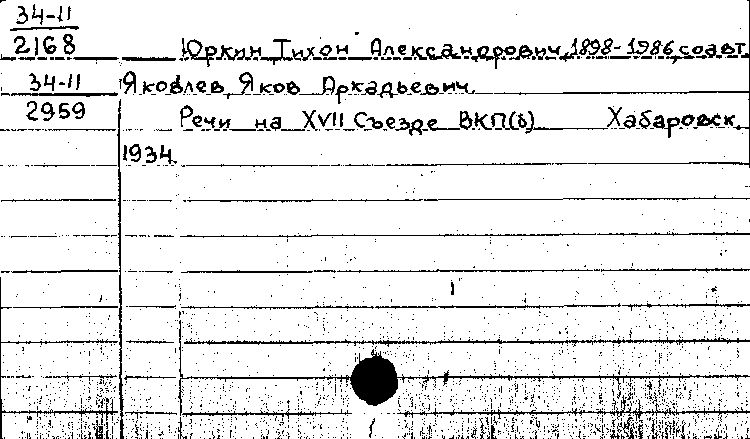 34-11
2168 Юркин, Тихон Александрович, 1898-1986, соавт.
34-11 Яковлев, Яков Аркадьевич.
2959 Речи на XVII Съезде ВКП(б) Хабаровск.
1934.